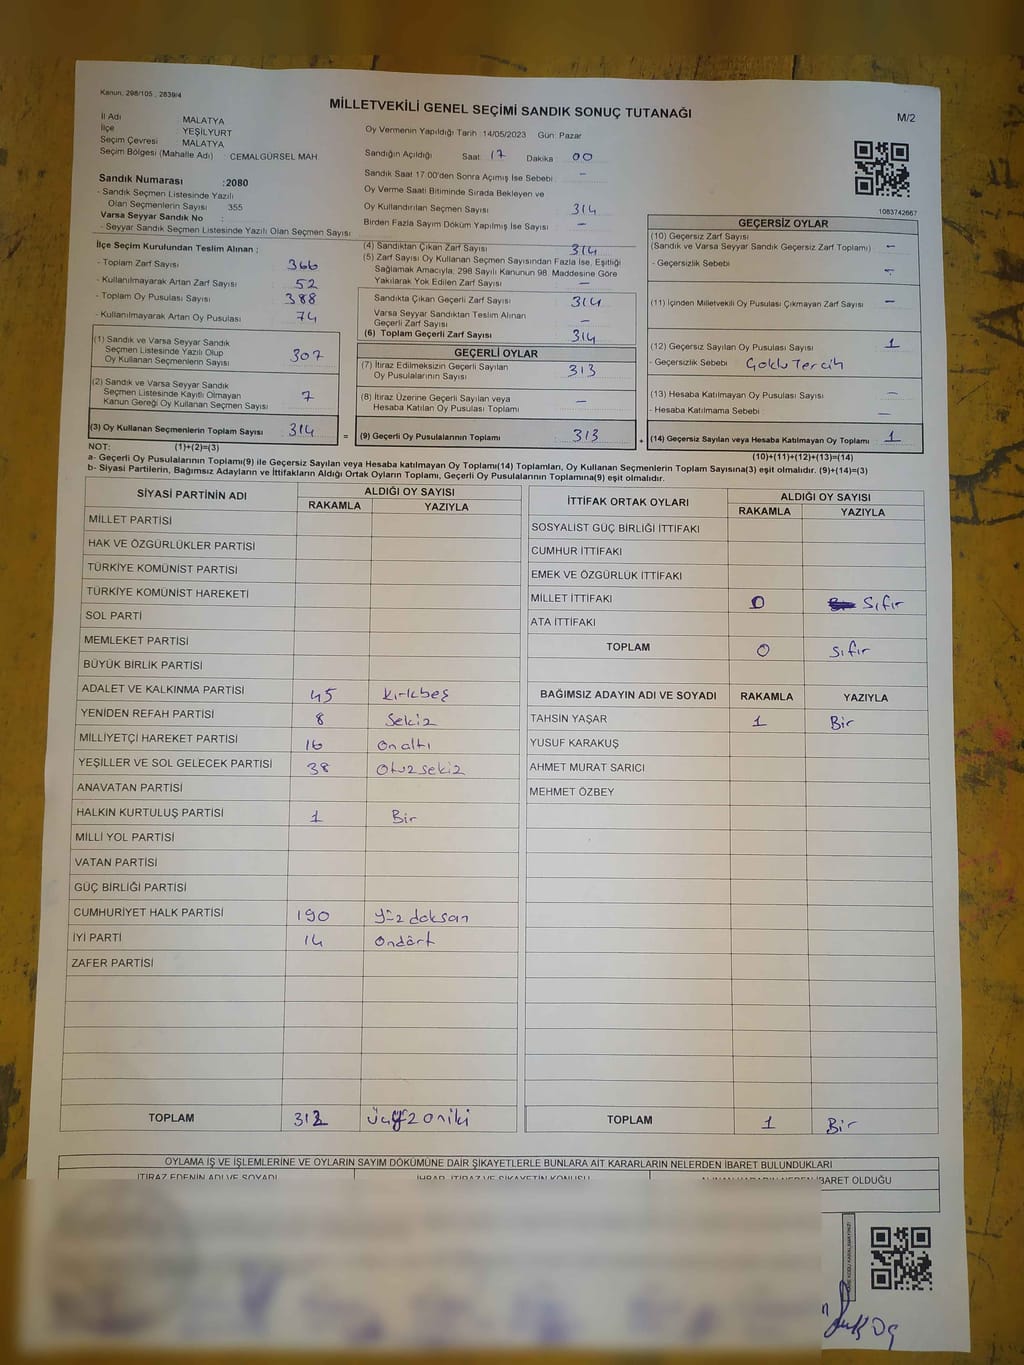 Kanun, 298/105 , 2839/4
MİLLETVEKİLİ GENEL SEÇİMİ SANDIK SONUÇ TUTANAĞI
M/2
İl Adı : MALATYA
İlçe : YEŞİLYURT
Seçim Çevresi : MALATYA
Seçim Bölgesi (Mahalle Adı) : CEMALGÜRSEL MAH.
Sandık Numarası :2080
- Sandık Seçmen Listesinde Yazılı
Olan Seçmenlerin Sayısı : 355
Varsa Seyyar Sandık No :
- Seyyar Sandık Seçmen Listesinde Yazılı Olan Seçmen Sayısı :
Oy Vermenin Yapıldığı Tarih :14/05/2023 Gün: Pazar
Sandığın Açıldığı Saat: 17 Dakika : 00
Sandık Saat 17.00'den Sonra Açımış İse Sebebi : -
Oy Verme Saati Bitiminde Sırada Bekleyen ve
Oy Kullandırılan Seçmen Sayısı : 314
Birden Fazla Sayım Döküm Yapılmış İse Sayısı : -
1083742667
İlçe Seçim Kurulundan Teslim Alınan :
- Toplam Zarf Sayısı : 366
- Kullanılmayarak Artan Zarf Sayısı : 52
- Toplam Oy Pusulası Sayısı : 388
- Kullanılmayarak Artan Oy Pusulası : 74
(1) Sandık ve Varsa Seyyar Sandık
Seçmen Listesinde Yazılı Olup
Oy Kullanan Seçmenlerin Sayısı : 307
(2) Sandık ve Varsa Seyyar Sandık
Seçmen Listesinde Kayıtlı Olmayan
Kanun Gereği Oy Kullanan Seçmen Sayısı : 7
(3) Oy Kullanan Seçmenlerin Toplam Sayısı : 314
(4) Sandıktan Çıkan Zarf Sayısı : 314
(5) Zarf Sayısı Oy Kullanan Seçmen Sayısından Fazla İse, Eşitliği
Sağlamak Amacıyla, 298 Sayılı Kanunun 98. Maddesine Göre
Yakılarak Yok Edilen Zarf Sayısı : -
Sandıkta Çıkan Geçerli Zarf Sayısı : 314
Varsa Seyyar Sandıktan Teslim Alınan
Geçerli Zarf Sayısı : -
(6) Toplam Geçerli Zarf Sayısı : 314
GEÇERLİ OYLAR
(7) İtiraz Edilmeksizin Geçerli Sayılan
Oy Pusulalarının Sayısı : 313
(8) İtiraz Üzerine Geçerli Sayılan veya
Hesaba Katılan Oy Pusulası Toplamı : -
= (9) Geçerli Oy Pusulalarının Toplamı : 313
GEÇERSİZ OYLAR
(10) Geçersiz Zarf Sayısı
(Sandık ve Varsa Seyyar Sandık Geçersiz Zarf Toplamı) : -
- Geçersizlik Sebebi : -
(11) İçinden Milletvekili Oy Pusulası Çıkmayan Zarf Sayısı : -
(12) Geçersiz Sayılan Oy Pusulası Sayısı : 1
- Geçersizlik Sebebi : Çoklu Tercih
(13) Hesaba Katılmayan Oy Pusulası Sayısı : -
- Hesaba Katılmama Sebebi : -
+ (14) Geçersiz Sayılan veya Hesaba Katılmayan Oy Toplamı : 1
NOT: (1)+(2)=(3)
(10)+(11)+(12)+(13)=(14)
a- Geçerli Oy Pusulalarının Toplamı(9) ile Geçersiz Sayılan veya Hesaba katılmayan Oy Toplamı(14) Toplamları, Oy Kullanan Seçmenlerin Toplam Sayısına(3) eşit olmalıdır. (9)+(14)=(3)
b- Siyasi Partilerin, Bağımsız Adayların ve İttifakların Aldığı Ortak Oyların Toplamı, Geçerli Oy Pusulalarının Toplamına(9) eşit olmalıdır.
SİYASİ PARTİNİN ADI ALDIĞI OY SAYISI
RAKAMLA YAZIYLA
MİLLET PARTİSİ
HAK VE ÖZGÜRLÜKLER PARTİSİ
TÜRKİYE KOMÜNİST PARTİSİ
TÜRKİYE KOMÜNİST HAREKETİ
SOL PARTİ
MEMLEKET PARTİSİ
BÜYÜK BİRLİK PARTİSİ
ADALET VE KALKINMA PARTİSİ 45 Kırkbeş
YENİDEN REFAH PARTİSİ 8 Sekiz
MİLLİYETÇİ HAREKET PARTİSİ 16 Onaltı
YEŞİLLER VE SOL GELECEK PARTİSİ 38 Otuzsekiz
ANAVATAN PARTİSİ
HALKIN KURTULUŞ PARTİSİ 1 Bir
MİLLİ YOL PARTİSİ
VATAN PARTİSİ
GÜÇ BİRLİĞİ PARTİSİ
CUMHURİYET HALK PARTİSİ 190 Yüz doksan
İYİ PARTİ 14 Ondört
ZAFER PARTİSİ
TOPLAM 312 Üçyüz oniki
İTTİFAK ORTAK OYLARI ALDIĞI OY SAYISI
RAKAMLA YAZIYLA
SOSYALİST GÜÇ BİRLİĞİ İTTİFAKI
CUMHUR İTTİFAKI
EMEK VE ÖZGÜRLÜK İTTİFAKI
MİLLET İTTİFAKI 0 Sıfır
ATA İTTİFAKI
TOPLAM 0 Sıfır
BAĞIMSIZ ADAYIN ADI VE SOYADI RAKAMLA YAZIYLA
TAHSİN YAŞAR 1 Bir
YUSUF KARAKUŞ
AHMET MURAT SARICI
MEHMET ÖZBEY
TOPLAM 1 Bir
OYLAMA İŞ VE İŞLEMLERİNE VE OYLARIN SAYIM DÖKÜMÜNE DAİR ŞİKAYETLERLE BUNLARA AİT KARARLARIN NELERDEN İBARET BULUNDUKLARI
İTİRAZ EDENİN ADI VE SOYADI
İHBAR, İTİRAZ VE ŞİKAYETİN KONUSU
İBARET OLDUĞU